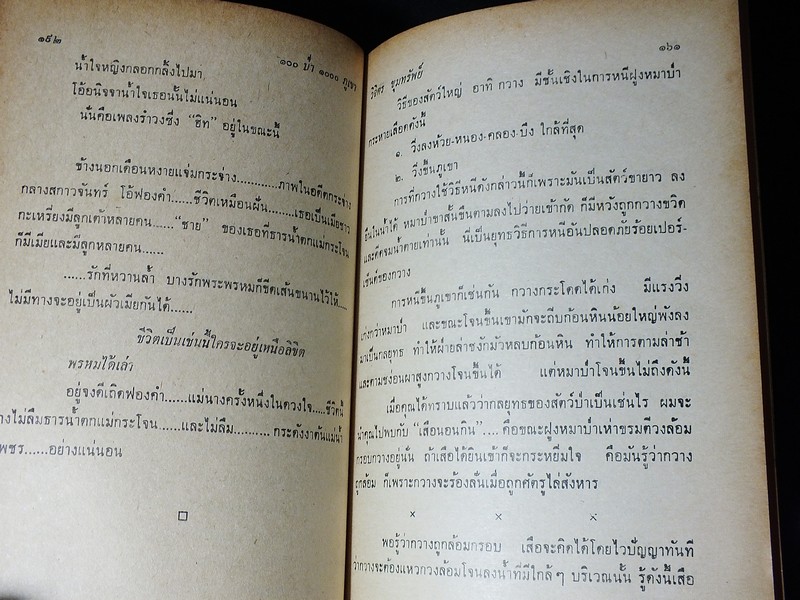 ๑๙๒
๑๐๐ ป่า ๑๐๐๐ ภูเขา
น้ำใจหญิงกลอกกลิ้งไปมา
โอ้อนิจจาน้ำใจเธอนั้นไม่แน่นอน
นั่นคือเพลงรำวงซึ่ง “ฮิท” อยู่ในขณะนี้
ข้างนอกเดือนหงายแจ่มกระจ่าง............ภาพในอดีตกระจ่าง
กลางสกาวจันทร์ โอ้ฟองคำ......ชีวิตเหมือนฝัน........เธอเป็นเมียชาว
กะเหรี่ยงมีลูกเต้าหลายคน......“ชาย” ของเธอที่ธารน้ำตกแม่กระโจน
ก็มีเมียและมีลูกหลายคน......
......รักที่หวานล้ำ บางรักพระพรหมก็ขีดเส้นขนานไว้ให้....
ไม่มีทางจะอยู่เป็นผัวเมียกันได้......
ชีวิตเป็นเช่นนี้ใครจะอยู่เหนือลิขิต
พรหมได้เล่า
อยู่จงดีเถิดฟองคำ......แม่นางครั้งหนึ่งในดวงใจ.....ชีวิตนี้
างไม่ลืมธารน้ำตกแม่กระโจน......และไม่ลืม..........กระดังงาต้นแม่น้ำ
เพชร......อย่างแน่นอน
๑๖๑
วิจิตร ขุมทรัพย์
วิธีของสัตว์ใหญ่ อาทิ กวาง มีชั้นเชิงในการหนีฝูงหมาป่า
กระหายเลือดดังนี้
๑. วิ่งลงห้วย-หนอง-คลอง-บึง ใกล้ที่สุด
๒. วิ่งขึ้นภูเขา
การที่กวางใช้วิธีหนีดังกล่าวนี้ก็เพราะมันเป็นสัตว์ขายาว ลง
ยืนในน้ำได้ หมาป่าขาสั้นขืนตามลงไปว่ายเข้ากัด ก็มีหวังถูกกวางขวิด
และดีดจมน้ำตายเท่านั้น นี่เป็นยุทธวิธีการหนีอันปลอดภัยร้อยเปอร์-
เซ็นต์ของกวาง
การหนีขึ้นภูเขาก็เช่นกัน กวางกระโดดได้เก่ง มีแรงวิ่ง
เก่งกว่าหมาป่า และขณะโจนขึ้นเขามักจะถีบก้อนหินน้อยใหญ่พังลง
มาเป็นกลยุทธ ทำให้ฝ่ายล่าชงักมัวหลบก้อนหิน ทำให้การตามล่าช้า
และตามชง่อนผาสูงกวางโจนขึ้นได้ แต่หมาป่าโจนขึ้นไม่ถึงดังนี้
เมื่อคุณได้ทราบแล้วว่ากลยุทธของสัตว์ป่าเป็นเช่นไร ผมจะ
นำคุณไปพบกับ “เสือนอนกิน”.... คือขณะฝูงหมาป่าเห่าขรมตีวงล้อม
กรอบกวางอยู่นั้น ถ้าเสือได้ยินเข้าก็จะกระหยิ่มใจ คือมันรู้ว่ากวาง
ถูกล้อม ก็เพราะกวางจะร้องลั่นเมื่อถูกศัตรูไล่สังหาร
× × ×
พอรู้ว่ากวางถูกล้อมกรอบ เสือจะคิดได้โดยไวปัญญาทันที
ว่ากวางจะต้องแหวกวงล้อมโจนลงน้ำที่มีใกล้ๆ บริเวณนั้น รู้ดังนี้เสือ